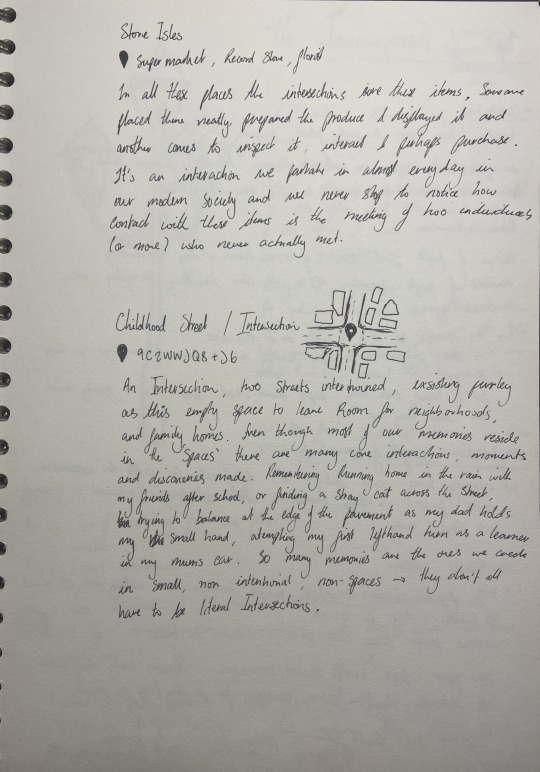 Stone Isles
Supermarket, Record Store, florist
In all these places the intersections are these items. Someone
placed them neatly, prepared the produce & displayed it and
another comes to inspect it, interact & perhaps purchase.
It's an interaction we partake in almost everyday in
our modern society and we never stop to notice how
contact with these items is the meeting of two individuals
(or more) who never actually met.
Childhood Street / Intersection
9C2WWJQ8+J6
An Intersection, two streets intertwined, exsisting purley
as this empty space to leave Room for neighborhoods,
and family homes. Even though most of our memories reside
in the 'Spaces' there are many core interactions, moments
and discoveries made. Remembering Running home in the rain with
my friends after school, or finding a stray cat across the street,
trying to balance at the edge of the pavement as my dad holds
my small hand, atempting my first lefthand turn as a learner
in my mums car. So many memories are the ones we create
in small, non intentional, non-spaces → they don't all
have to be literal Intersections.